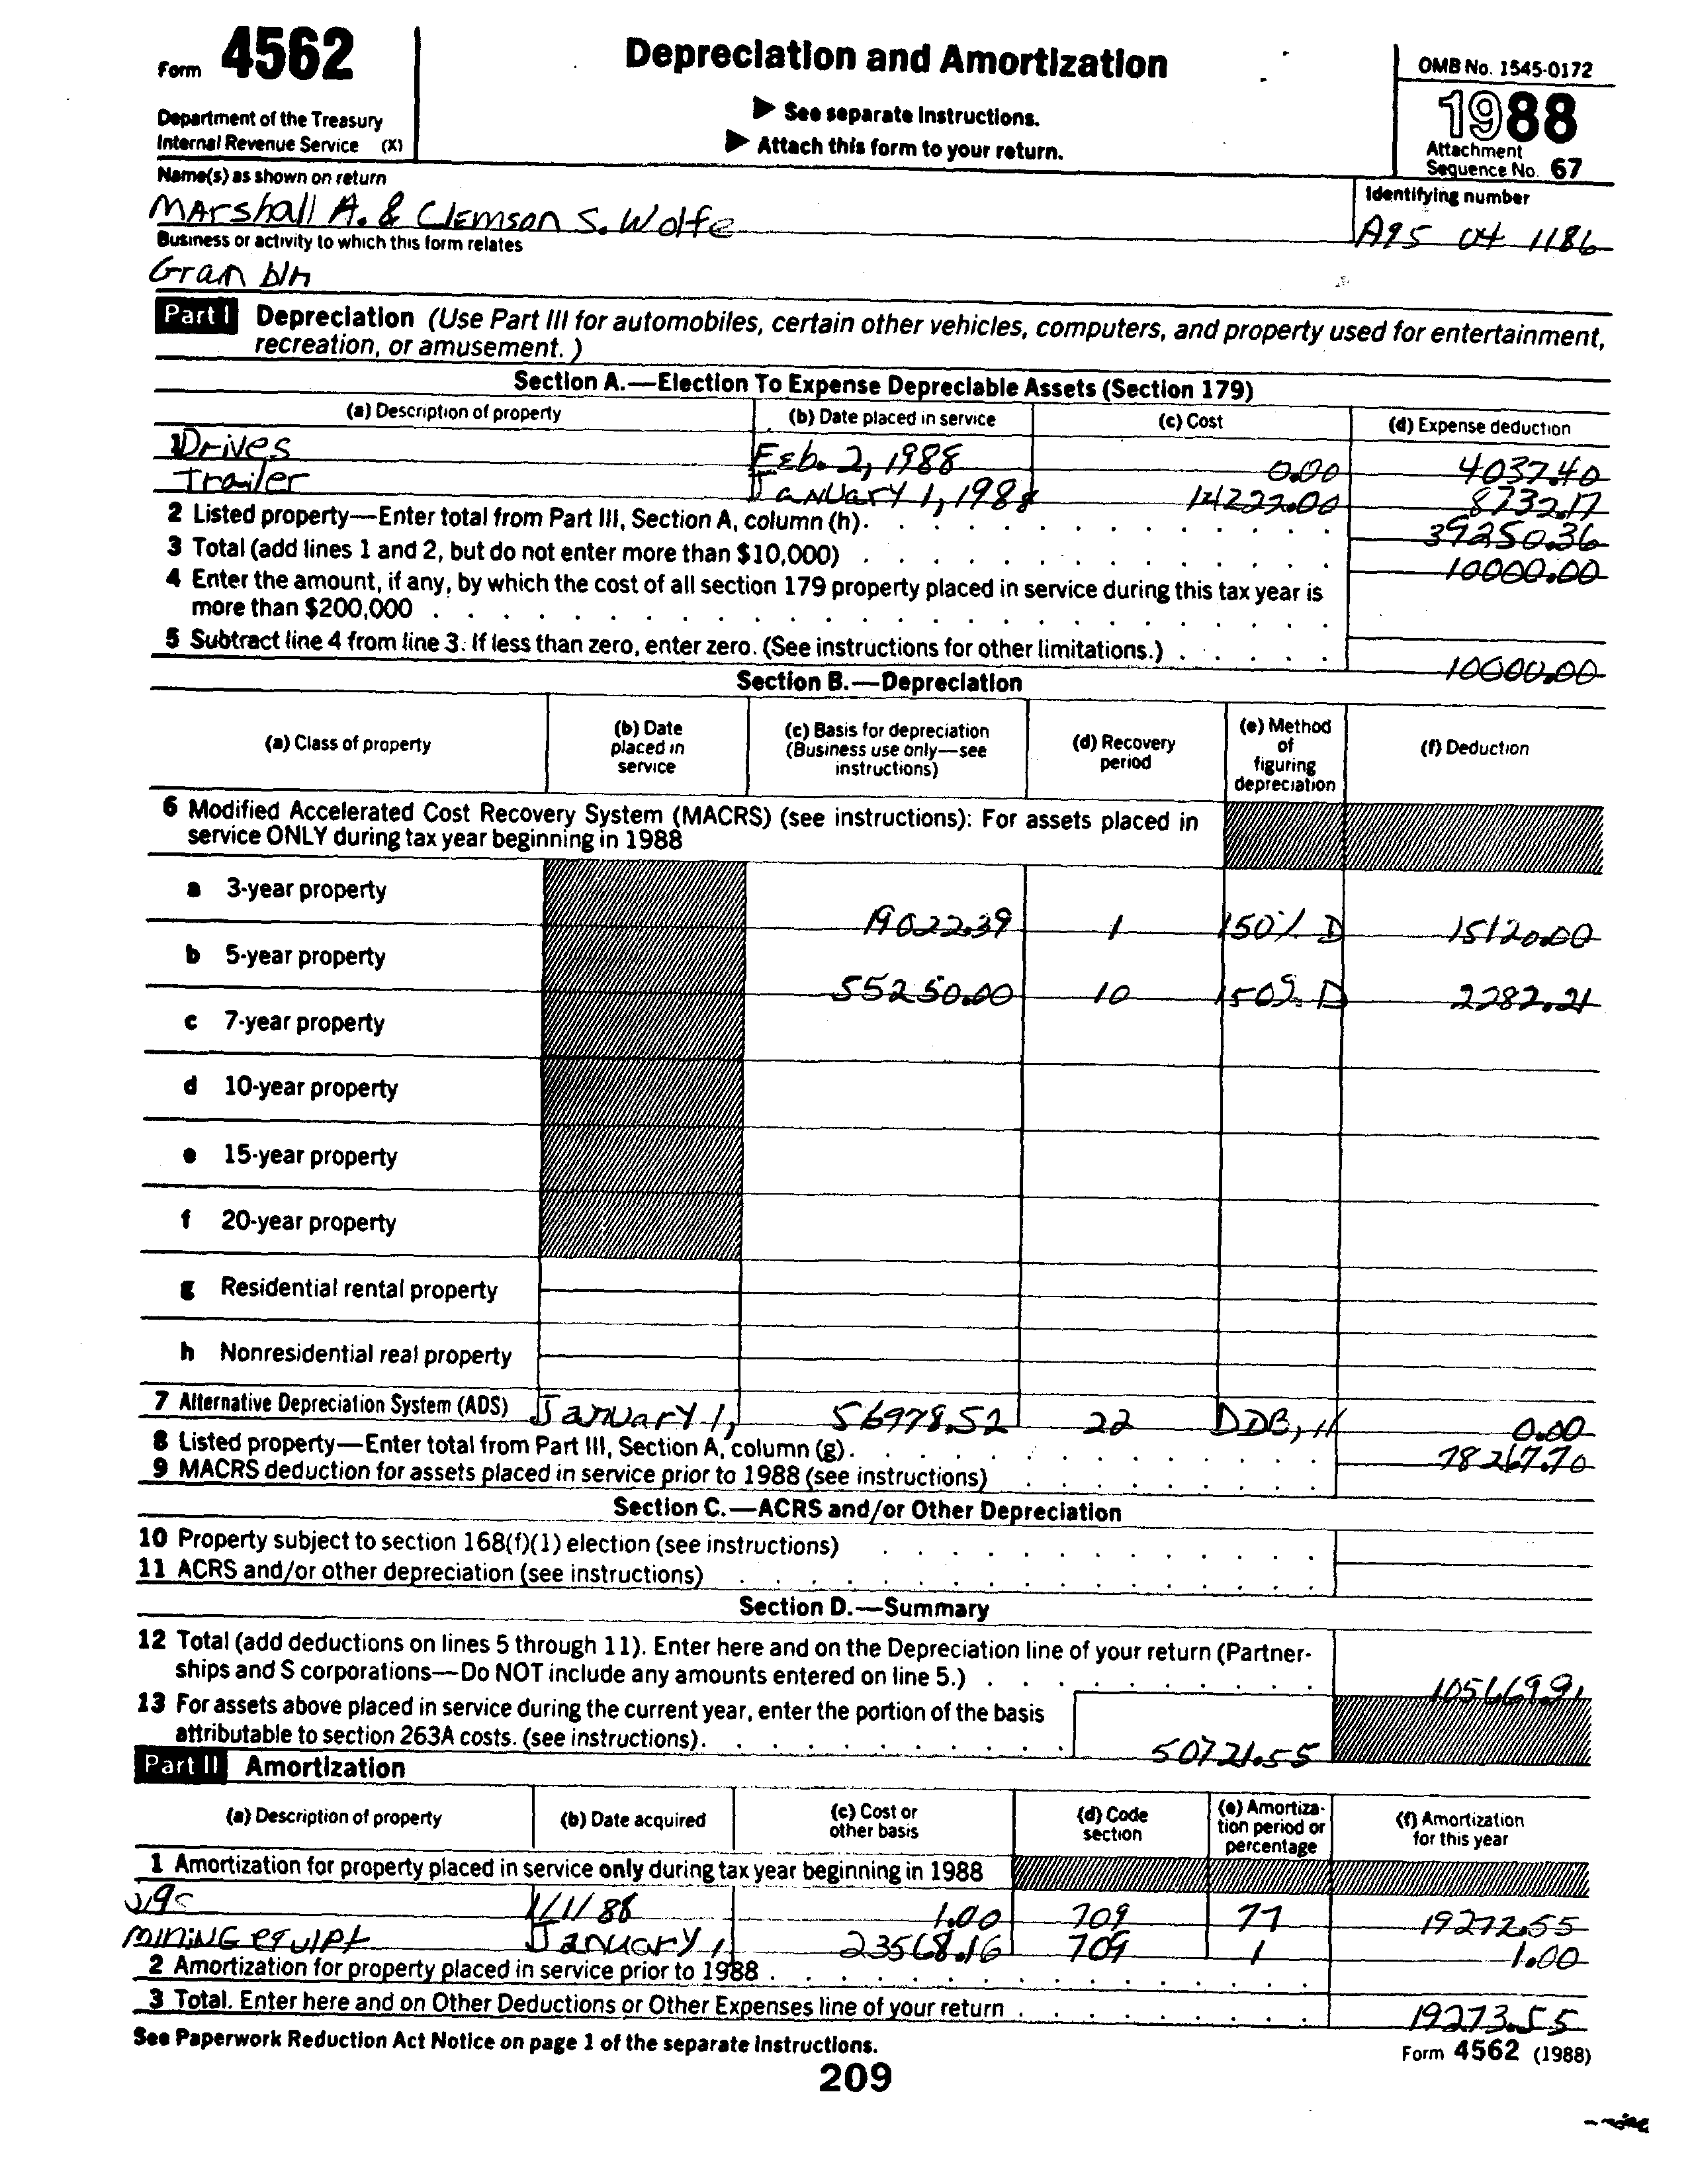 Form 4562
Depreciation and Amortization
OMB No. 1545-0172
Department of the Treasury
Internal Revenue Service (X)
▶ See separate Instructions.
▶ Attach this form to your return.
1988
Attachment
Sequence No. 67
Name(s) as shown on return
Identifying number
Marshall A. & Clemson S. Wolfe
A95 04 1186
Business or activity to which this form relates
Gran
Part I Depreciation (Use Part III for automobiles, certain other vehicles, computers, and property used for entertainment,
recreation, or amusement.)
Section A.—Election To Expense Depreciable Assets (Section 179)
(a) Description of property (b) Date placed in service (c) Cost (d) Expense deduction
1 Drives Feb. 2, 1988 0.00 4037.40
Trailer January 1, 1988 14222.00 8732.17
2 Listed property—Enter total from Part III, Section A, column (h). 39250.36
3 Total (add lines 1 and 2, but do not enter more than $10,000) 10000.00
4 Enter the amount, if any, by which the cost of all section 179 property placed in service during this tax year is
more than $200,000
5 Subtract line 4 from line 3. If less than zero, enter zero. (See instructions for other limitations.) 10000.00
Section B.—Depreciation
(a) Class of property (b) Date placed in service (c) Basis for depreciation (Business use only—see instructions) (d) Recovery period (e) Method of figuring depreciation (f) Deduction
6 Modified Accelerated Cost Recovery System (MACRS) (see instructions): For assets placed in
service ONLY during tax year beginning in 1988
a 3-year property 19022.39 1 150% D 15120.00
b 5-year property 55250.00 10 150% D 2282.21
c 7-year property
d 10-year property
e 15-year property
f 20-year property
g Residential rental property
h Nonresidential real property
7 Alternative Depreciation System (ADS) January 1, 56978.52 22 DDB, 0.00
8 Listed property—Enter total from Part III, Section A, column (g). 78267.70
9 MACRS deduction for assets placed in service prior to 1988 (see instructions)
Section C.—ACRS and/or Other Depreciation
10 Property subject to section 168(f)(1) election (see instructions)
11 ACRS and/or other depreciation (see instructions)
Section D.—Summary
12 Total (add deductions on lines 5 through 11). Enter here and on the Depreciation line of your return (Partner-
ships and S corporations—Do NOT include any amounts entered on line 5.) 105669.91
13 For assets above placed in service during the current year, enter the portion of the basis
attributable to section 263A costs. (see instructions). 50721.55
Part II Amortization
(a) Description of property (b) Date acquired (c) Cost or other basis (d) Code section (e) Amortiza-tion period or percentage (f) Amortization for this year
1 Amortization for property placed in service only during tax year beginning in 1988
1/1/88 1.00 709 77 19272.55
mining equipt January 1 23568.16 709 1 1.00
2 Amortization for property placed in service prior to 1988
3 Total. Enter here and on Other Deductions or Other Expenses line of your return 19273.55
See Paperwork Reduction Act Notice on page 1 of the separate instructions.
Form 4562 (1988)
209